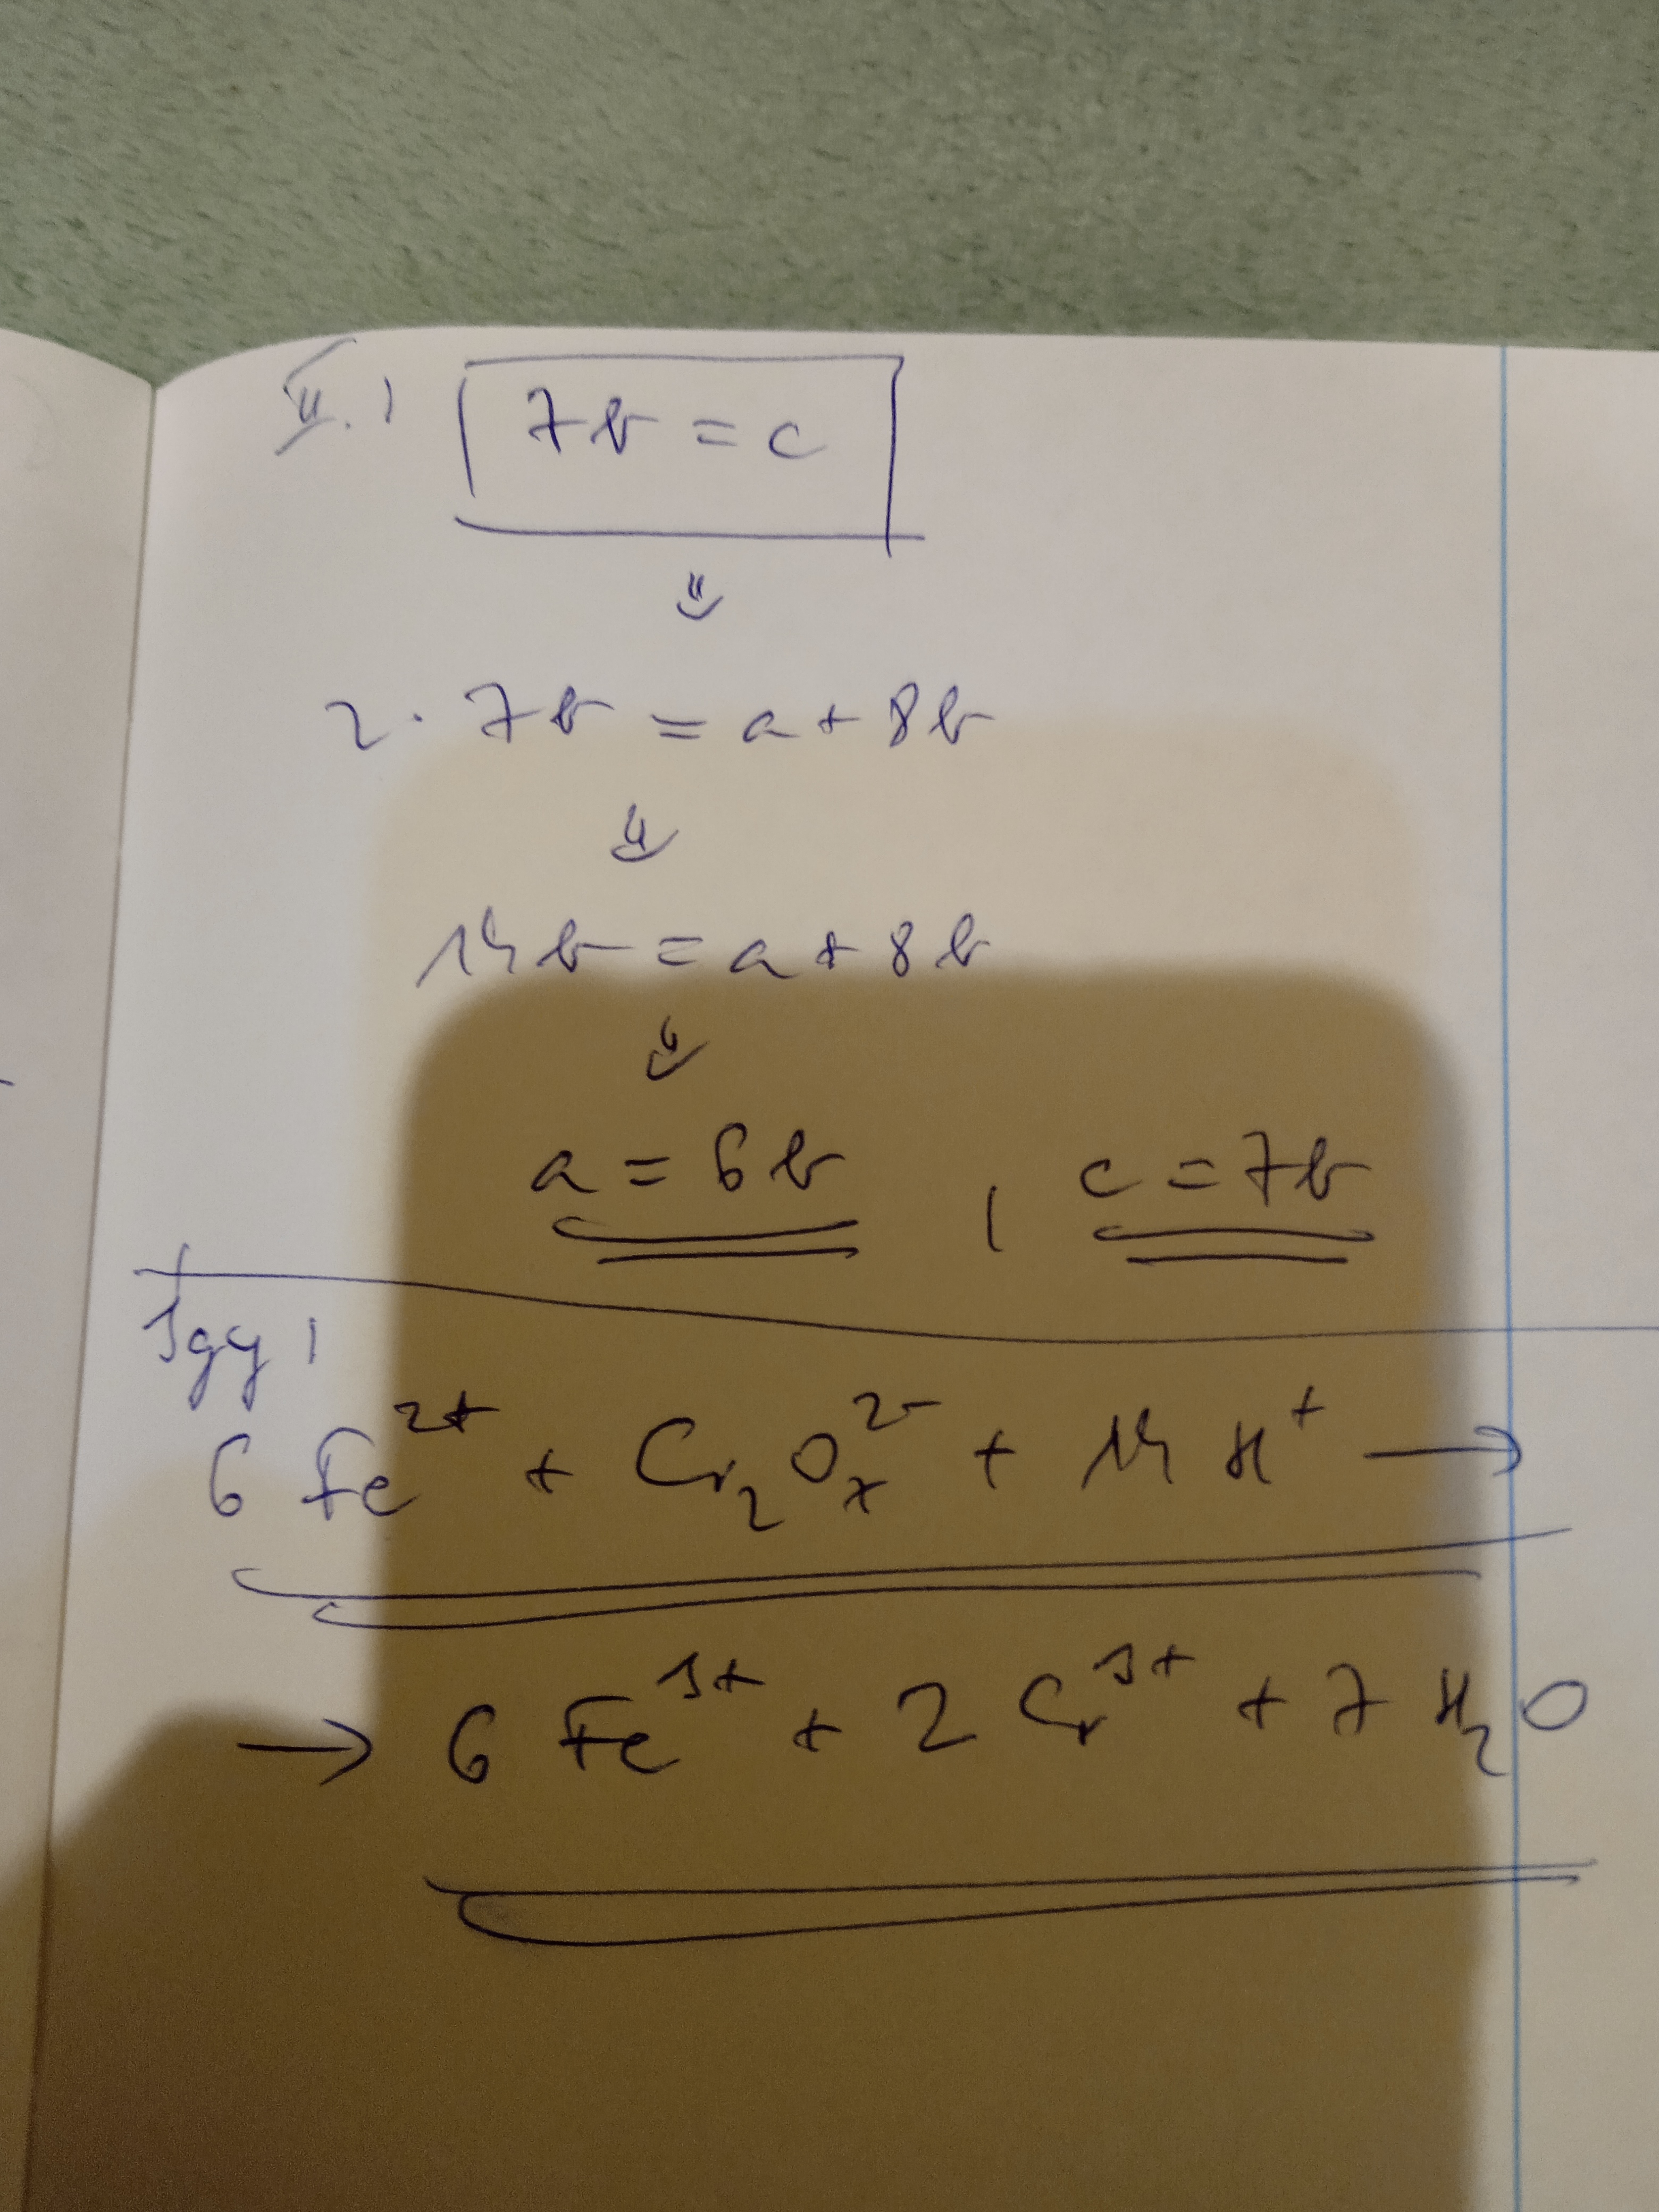 II.) 7b = c
⇓
2 · 7b = a + 8b
⇓
14b = a + 8b
⇓
a = 6b , c = 7b
Így:
6 Fe²⁺ + Cr₂O₇²⁻ + 14 H⁺ →
→ 6 Fe³⁺ + 2 Cr³⁺ + 7 H₂O